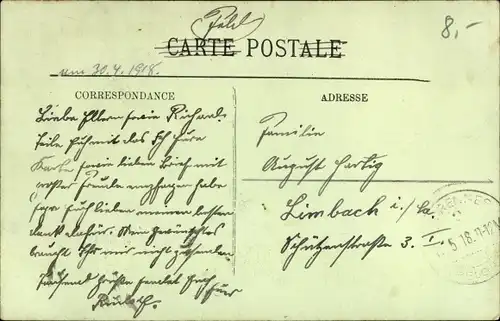 Feld
8,-
CARTE POSTALE
am 30.4.1918.
CORRESPONDANCE
ADRESSE
Liebe Eltern sowie Richard.
Teile Euch mit das Ich Eure
Karte sowie lieben Brief mit
großer Freude empfangen habe
sage Euch lieben meinen besten
Dank dafür. Mein Gewünschtes
braucht Ihr mir nicht zusenden
Tausend Grüße sendet Euch
Euer
Rudolf.
Familie
August Hartig
Limbach i./Sa.
Schützenstraße 3. I.
5.18.11-12